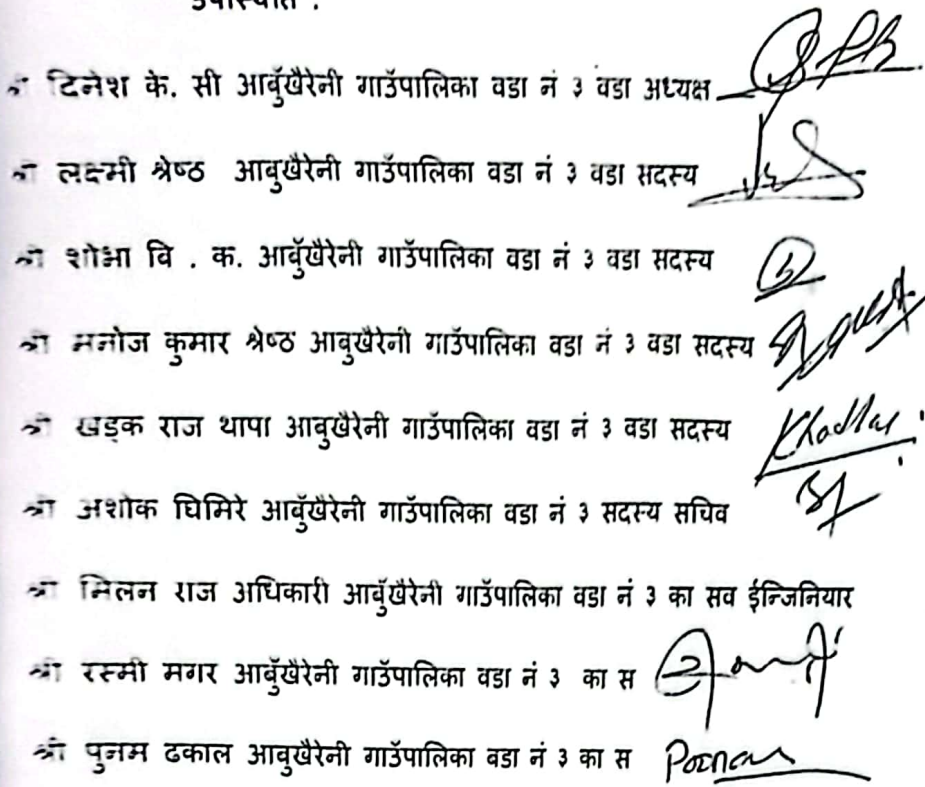 उपस्थिति :
श्री टिनेश के. सी आबुँखैरेनी गाउँपालिका वडा नं ३ वडा अध्यक्ष
श्री लक्ष्मी श्रेष्ठ आबुखैरेनी गाउँपालिका वडा नं ३ वडा सदस्य
श्री शोभा वि . क. आबुँखैरेनी गाउँपालिका वडा नं ३ वडा सदस्य
श्री मनोज कुमार श्रेष्ठ आबुखैरेनी गाउँपालिका वडा नं ३ वडा सदस्य
श्री खड्क राज थापा आबुखैरेनी गाउँपालिका वडा नं ३ वडा सदस्य
श्री अशोक घिमिरे आबुँखैरेनी गाउँपालिका वडा नं ३ सदस्य सचिव
श्री मिलन राज अधिकारी आबुँखैरेनी गाउँपालिका वडा नं ३ का सव ईन्जिनियार
श्री रस्मी मगर आबुँखैरेनी गाउँपालिका वडा नं ३ का स
श्री पुनम ढकाल आबुखैरेनी गाउँपालिका वडा नं ३ का स